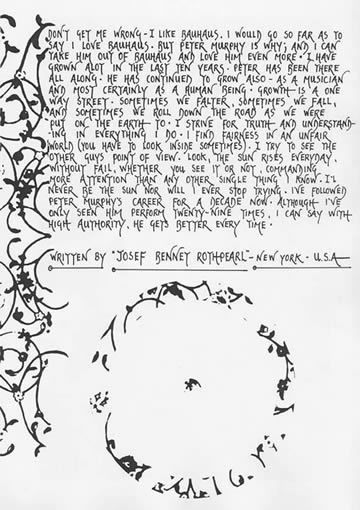 DON'T GET ME WRONG - I LIKE BAUHAUS. I WOULD GO SO FAR AS TO
SAY I LOVE BAUHAUS. BUT PETER MURPHY IS WHY; AND I CAN
TAKE HIM OUT OF BAUHAUS AND LOVE HIM EVEN MORE. I HAVE
GROWN ALOT IN THE LAST TEN YEARS. PETER HAS BEEN THERE
ALL ALONG. HE HAS CONTINUED TO GROW ALSO - AS A MUSICIAN
AND MOST CERTAINLY AS A HUMAN BEING. GROWTH IS A ONE
WAY STREET. SOMETIMES WE FALTER, SOMETIMES WE FALL,
AND SOMETIMES WE ROLL DOWN THE ROAD AS WE WERE
PUT ON THE EARTH TO. I STRIVE FOR TRUTH AND UNDERSTAND-
ING IN EVERYTHING I DO. I FIND FAIRNESS IN AN UNFAIR
WORLD (YOU HAVE TO LOOK INSIDE SOMETIMES). I TRY TO SEE THE
OTHER GUYS POINT OF VIEW. LOOK, THE SUN RISES EVERYDAY,
WITHOUT FAIL, WHETHER YOU SEE IT OR NOT, COMMANDING
MORE ATTENTION THAN ANY OTHER SINGLE THING I KNOW. I'LL
NEVER BE THE SUN NOR WILL I EVER STOP TRYING. I'VE FOLLOWED
PETER MURPHY'S CAREER FOR A DECADE NOW. ALTHOUGH I'VE
ONLY SEEN HIM PERFORM TWENTY-NINE TIMES, I CAN SAY WITH
HIGH AUTHORITY, HE GETS BETTER EVERY TIME.
WRITTEN BY "JOSEF BENNEY ROTHPEARL" - NEW YORK. U.S.A